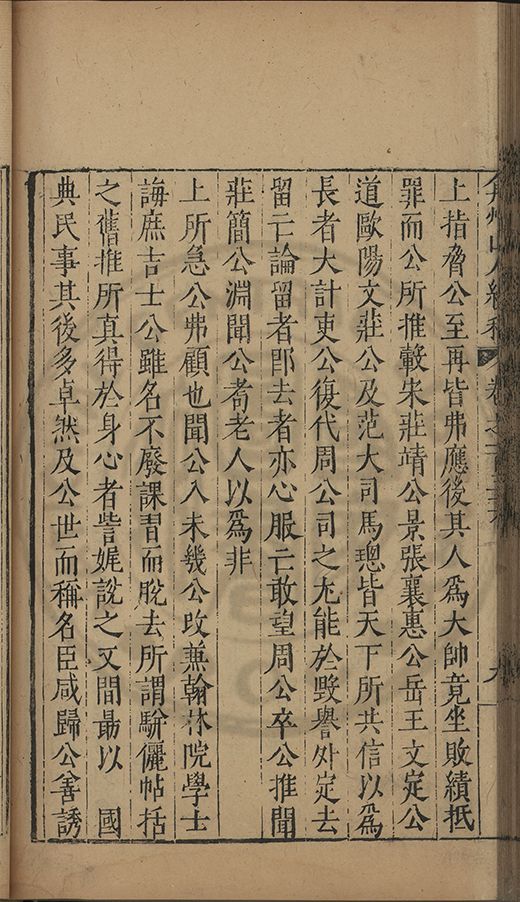 弇州山人續稿 卷之一百三十六 九
上指脅公至再皆弗應後其人爲大帥竟坐敗績抵
罪而公所推轂朱莊靖公景張襄惠公岳王文定公
道歐陽文莊公及范大司馬璁皆天下所共信以爲
長者大計吏公復代周公司之尤能於毀譽外定去
留亡論留者卽去者亦心服亡敢望周公卒公推聞
莊簡公淵聞公耆老人以爲非
上所急公弗顧也聞公入未幾公改兼翰林院學士
誨庶吉士公雖名不廢課習而脫去所謂駢儷帖括
之舊推所真得於身心者訔娓說之又間最以 國
典民事其後多卓然及公世而稱名臣咸歸公善誘